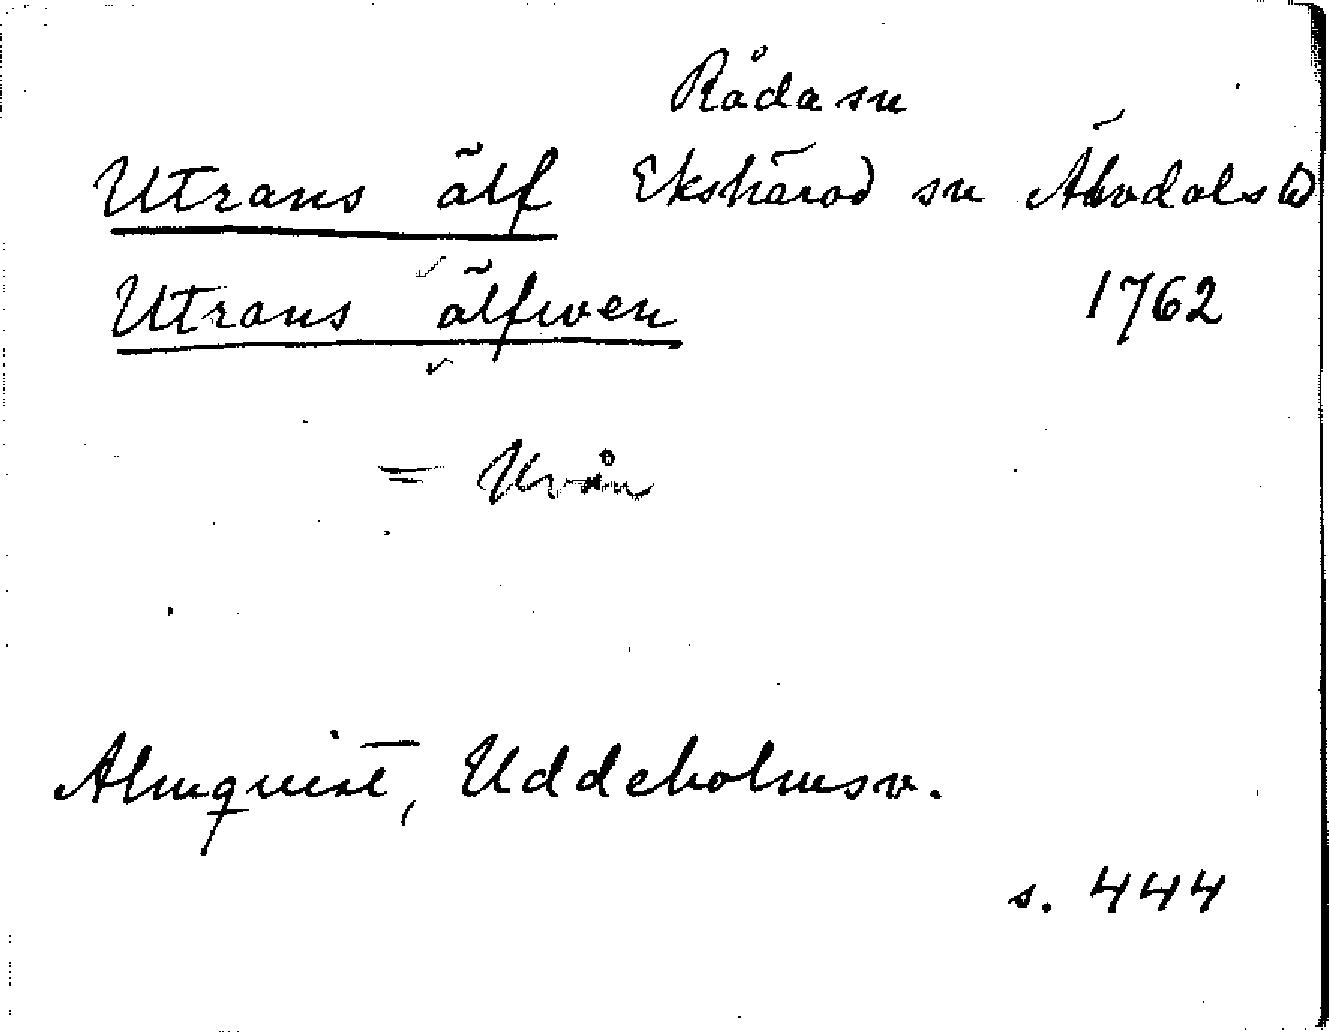 Råda sn
Utrans älf Ekshärad sn Älvdals hd
Utrans älfwen 1762
= Uvån
Almquist, Uddeholmsv.
s. 444